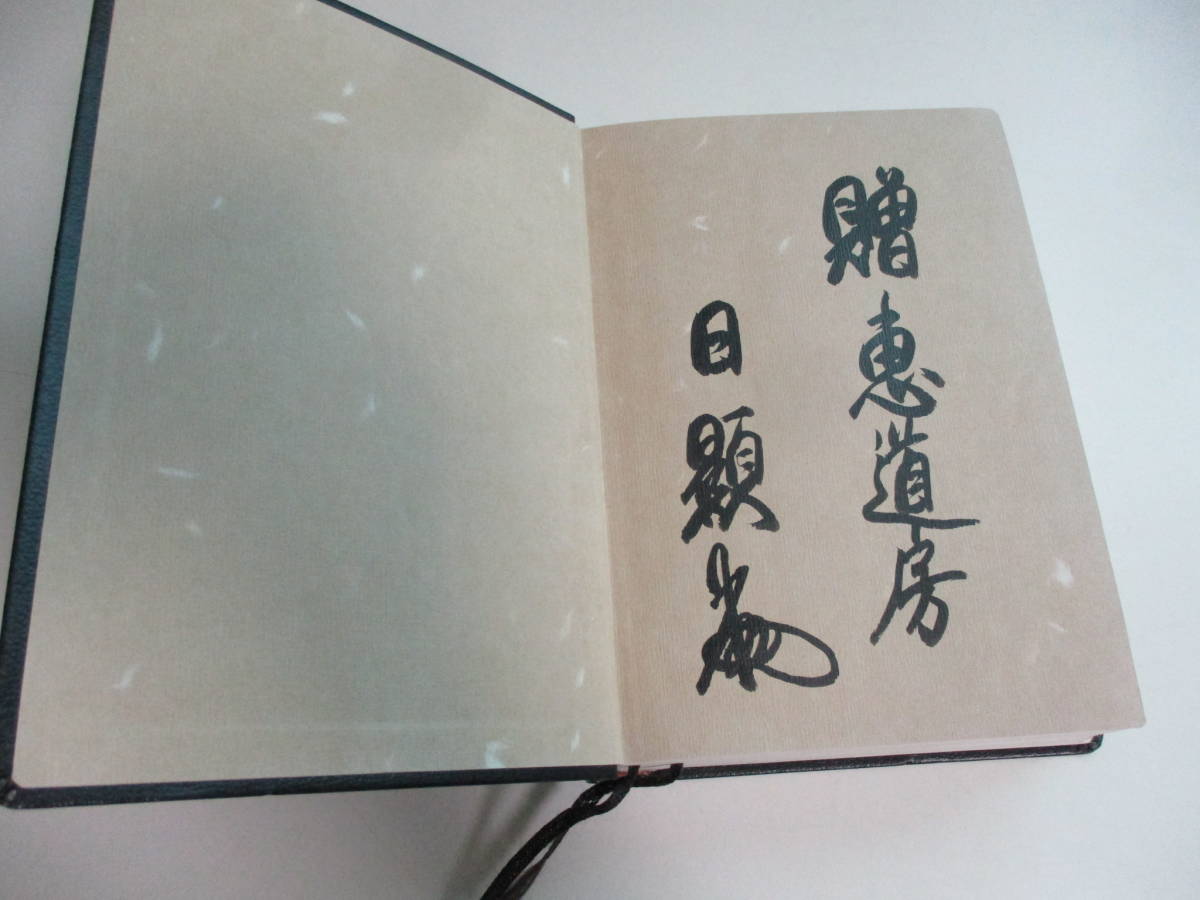 贈 恵道房
日顕